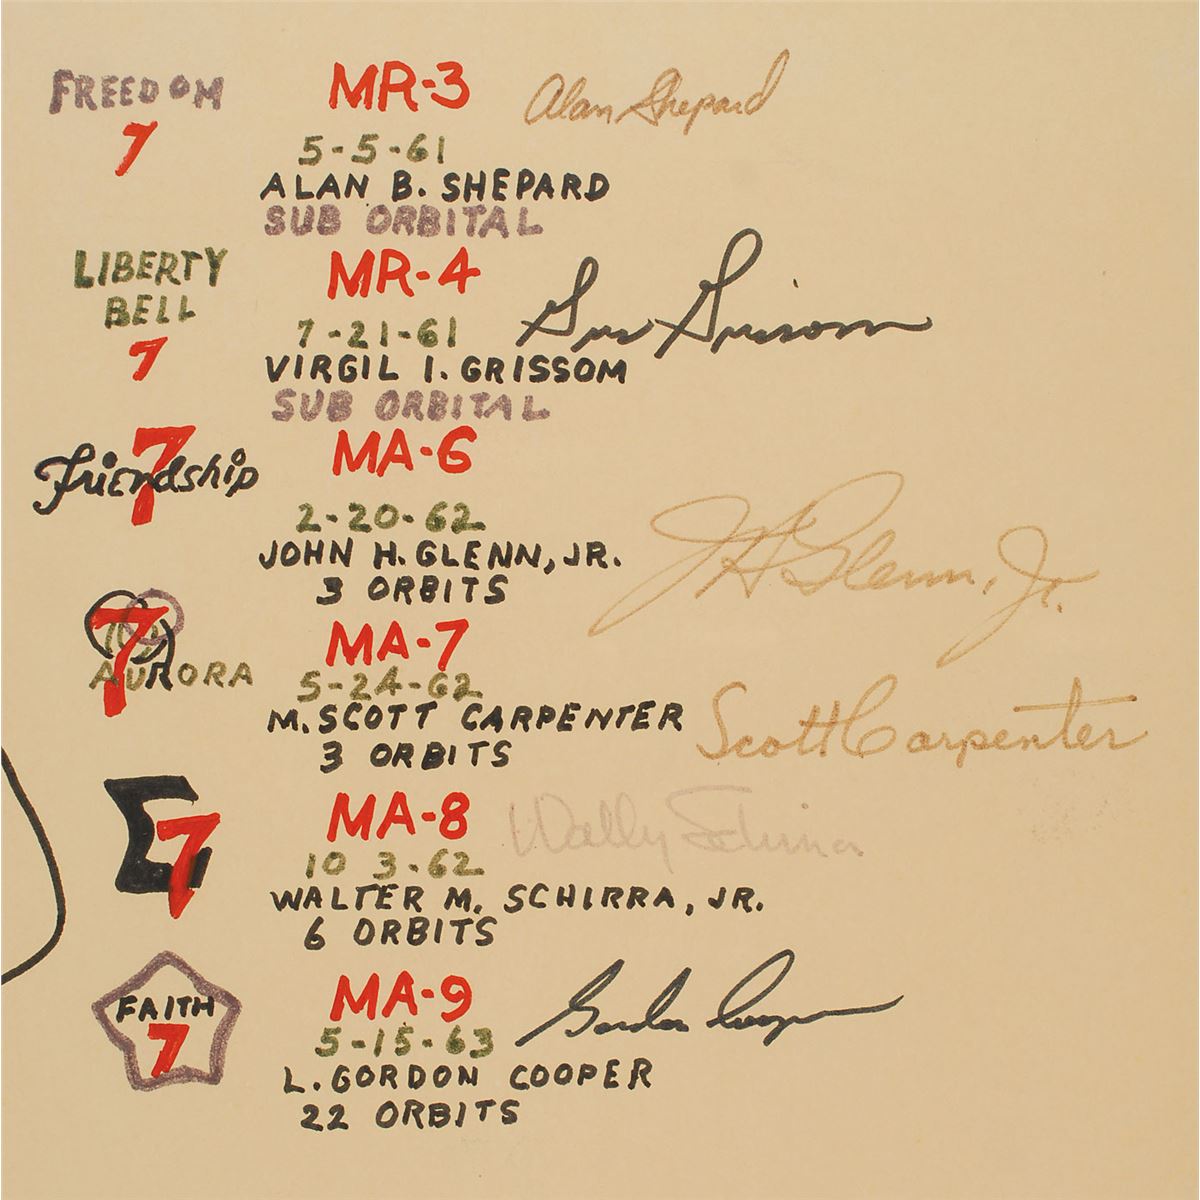 FREEDOM
7
MR-3
Alan Shepard
5-5-61
ALAN B. SHEPARD
SUB ORBITAL
LIBERTY
BELL
7
MR-4
Gus Grissom
7-21-61
VIRGIL I. GRISSOM
SUB ORBITAL
Friendship
7
MA-6
2-20-62
JOHN H. GLENN, JR.
3 ORBITS
JH Glenn, Jr.
7
AURORA
MA-7
5-24-62
M. SCOTT CARPENTER
3 ORBITS
Scott Carpenter
Σ7
MA-8
Wally Schirra
10 3-62
WALTER M. SCHIRRA, JR.
6 ORBITS
FAITH
7
MA-9
Gordon Cooper
5-15-63
L. GORDON COOPER
22 ORBITS